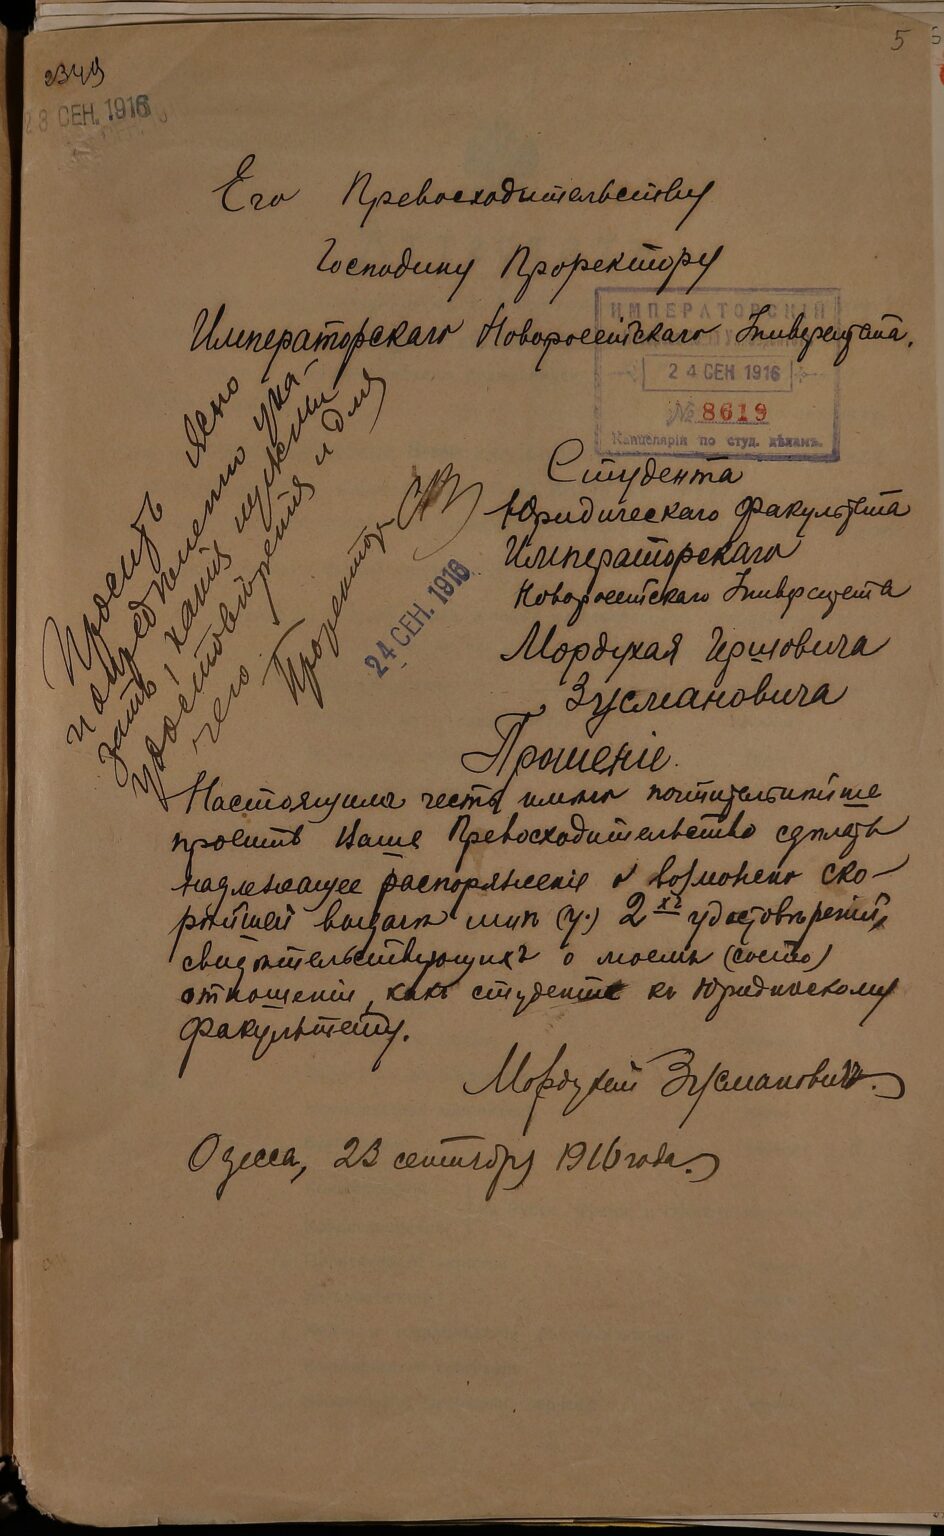 5
2349
28 СЕН. 1916
Его Превосходительству
Господину Проректору
Императорскаго Новороссійскаго Университета.
ИМПЕРАТОРСКІЙ
24 СЕН 1916
№ 8619
Канцелярія по студ. дѣламъ.
Просить ясно
и опредѣленно ука-
зать, какія нужны
удостовѣренія и для
чего
Проректор
24 СЕН. 1916
Студента
Юридическаго факультета
Императорскаго
Новороссійскаго Университета
Мордухая Гершовича
Зусмановича
Прошеніе.
Настоящимъ честь имѣю почтительнѣйше
просить Ваше Превосходительство сдѣлать
надлежащее распоряженіе о возможно ско-
рѣйшей выдачѣ мнѣ (у.) 2хъ удостовѣреній,
свидѣтельствующихъ о моемъ (состо)
отношеніи, какъ студента къ Юридическому
факультету.
Мордухай Зусмановичъ.
Одесса, 23 сентября 1916 года.